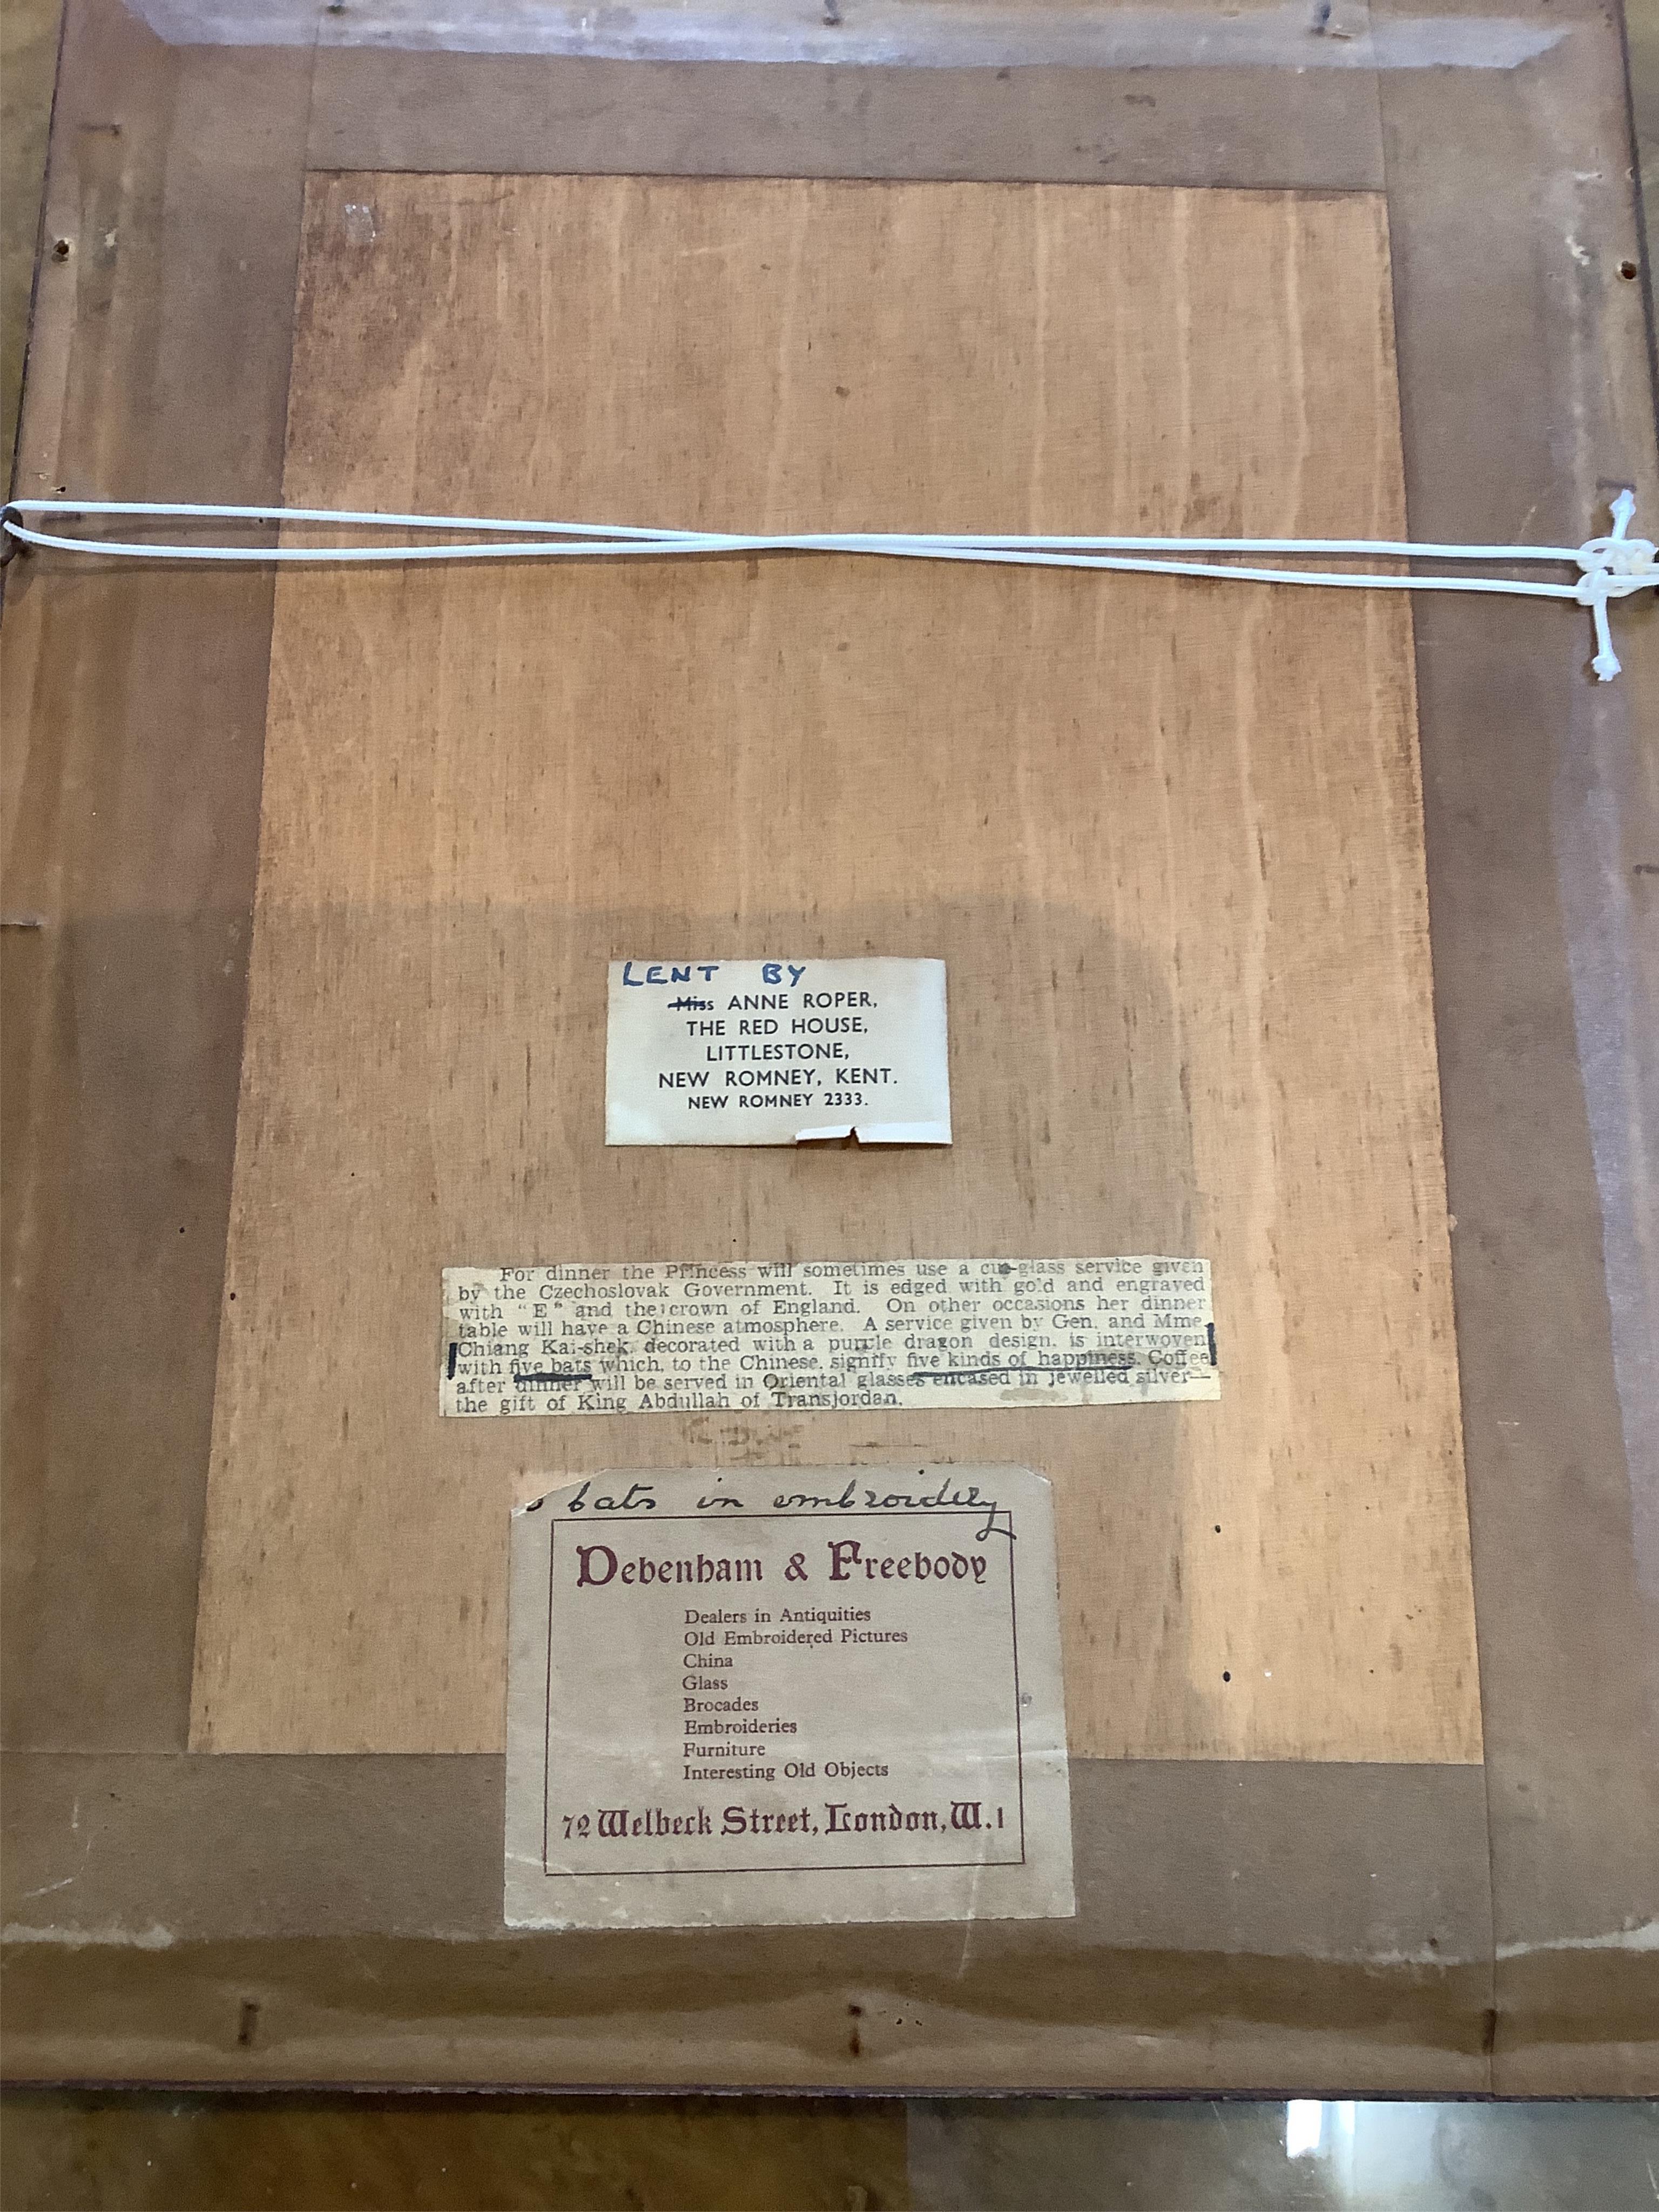 LENT BY
Miss ANNE ROPER,
THE RED HOUSE,
LITTLESTONE,
NEW ROMNEY, KENT.
NEW ROMNEY 2333.
For dinner the Princess will sometimes use a cut-glass service given
by the Czechoslovak Government. It is edged with gold and engraved
with "E" and the crown of England. On other occasions her dinner
table will have a Chinese atmosphere. A service given by Gen. and Mme.
Chiang Kai-shek, decorated with a purple dragon design, is interwoven
with five bats which, to the Chinese, signify five kinds of happiness. Coffee
after dinner will be served in Oriental glasses encased in jewelled silver—
the gift of King Abdullah of Transjordan.
bats in embroidery
Debenham & Freebody
Dealers in Antiquities
Old Embroidered Pictures
China
Glass
Brocades
Embroideries
Furniture
Interesting Old Objects
72 Welbeck Street, London, W.1